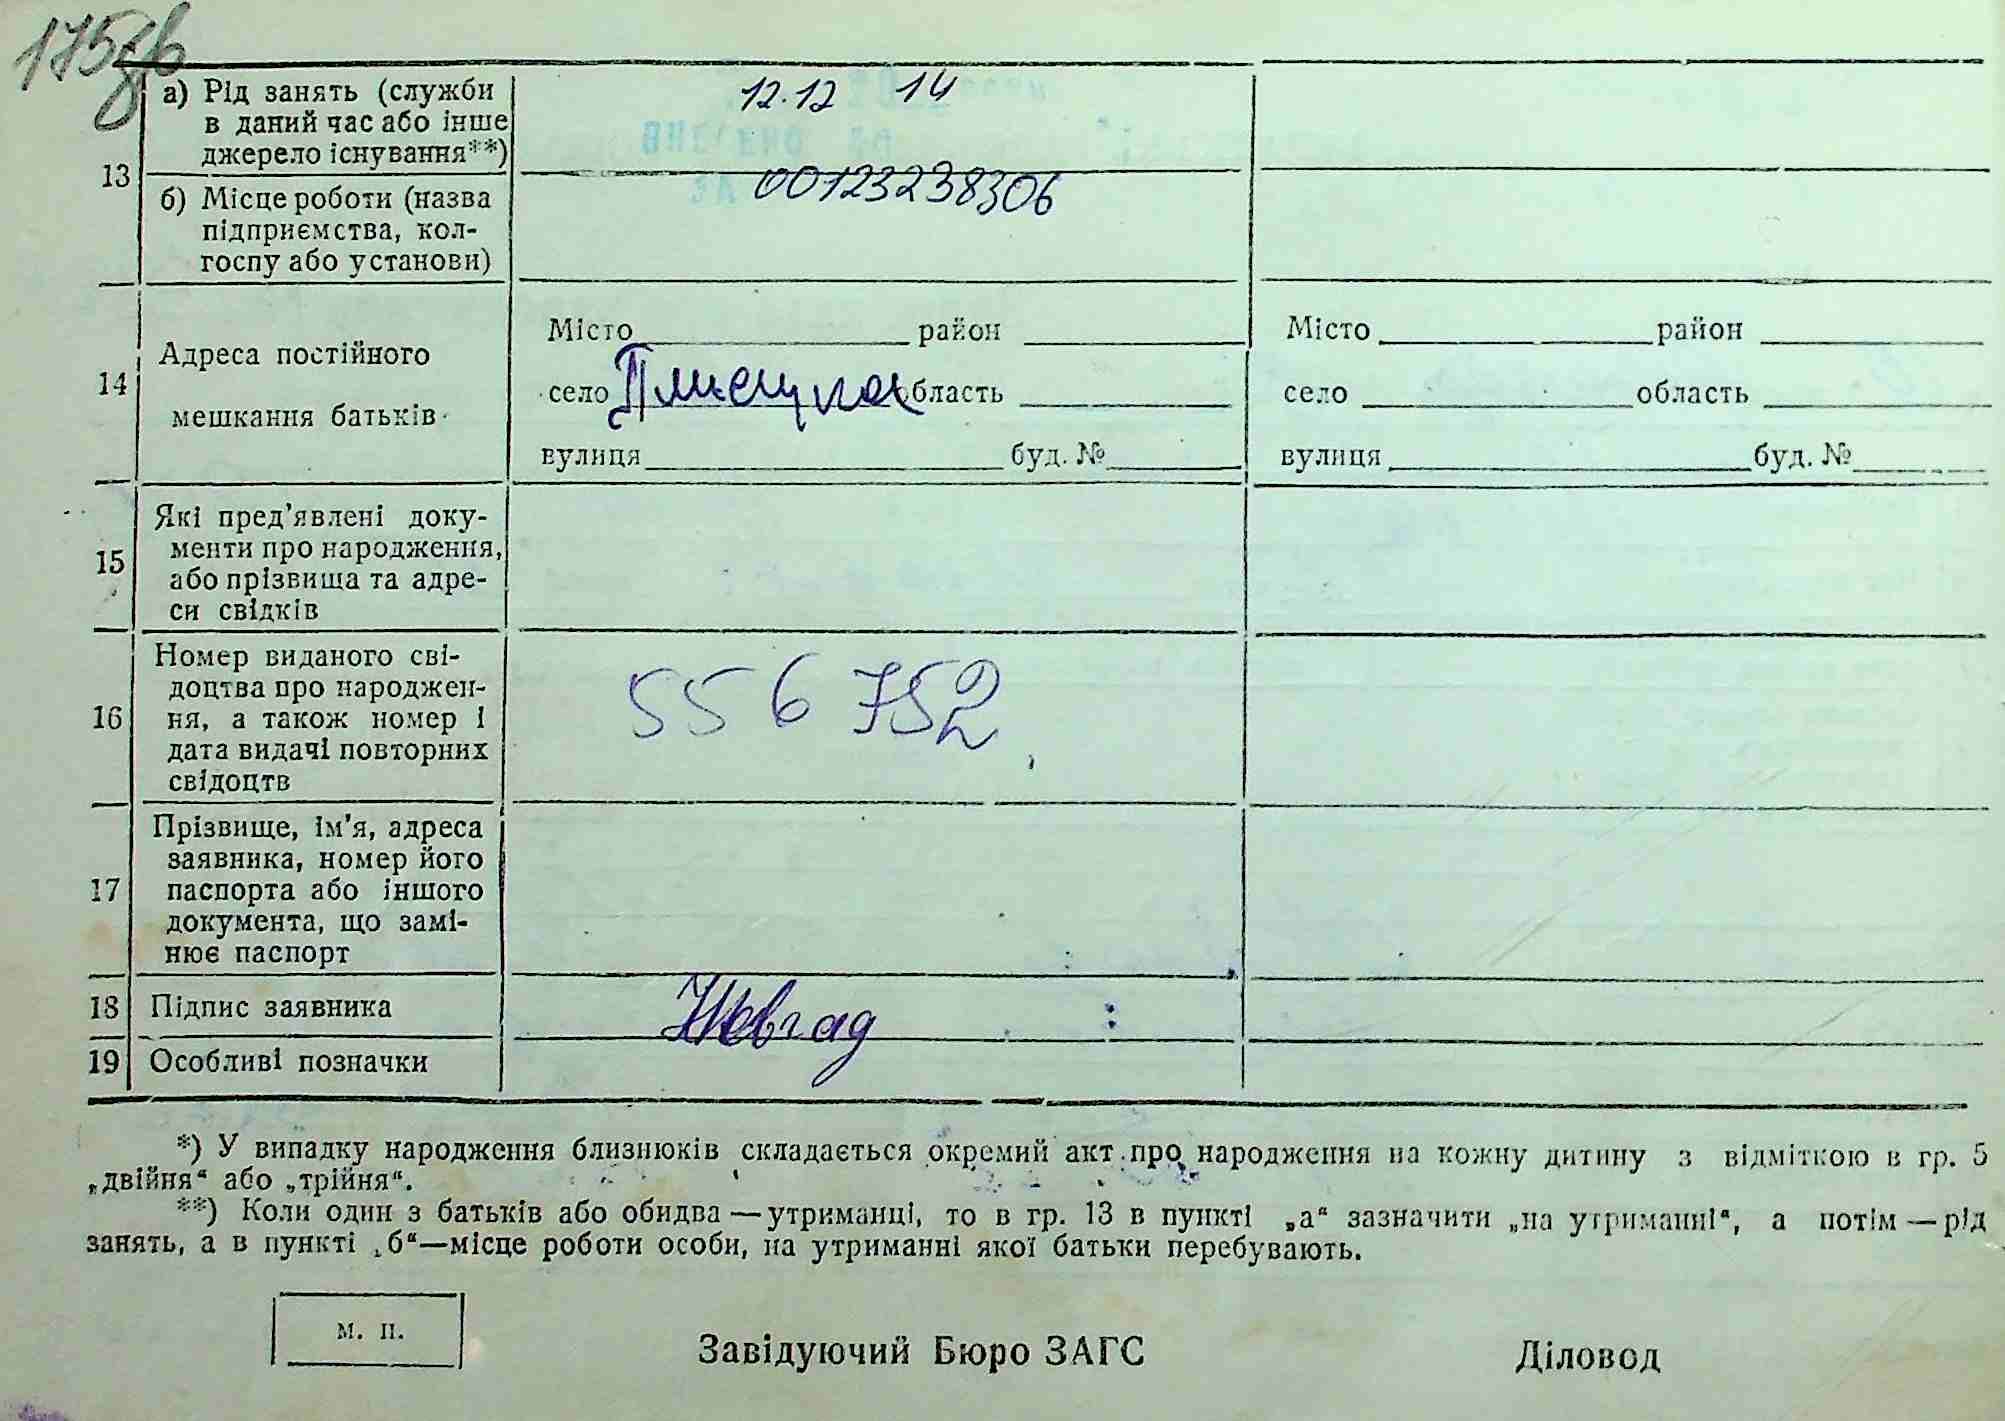 а) Рід занять (служби
в даний час або інше
джерело існування**)
12.12 14
13
б) Місце роботи (назва
підприємства, кол-
госпу або установи)
00123238306
Місто район
Місто район
14
Адреса постійного
мешкання батьків
село область
село область
вулиця буд. №
вулиця буд. №
15
Які пред'явлені доку-
менти про народження,
або прізвища та адре-
си свідків
16
Номер виданого сві-
доцтва про народжен-
ня, а також номер і
дата видачі повторних
свідоцтв
556752
17
Прізвище, ім'я, адреса
заявника, номер його
паспорта або іншого
документа, що замі-
нює паспорт
18 Підпис заявника
19 Особливі позначки
*) У випадку народження близнюків складається окремий акт про народження на кожну дитину з відміткою в гр. 5
„двійня“ або „трійня“.
**) Коли один з батьків або обидва — утриманці, то в гр. 13 в пункті „а“ зазначити „на утриманні“, а потім — рід
занять, а в пункті „б“—місце роботи особи, на утриманні якої батьки перебувають.
м. п.
Завідуючий Бюро ЗАГС
Діловод